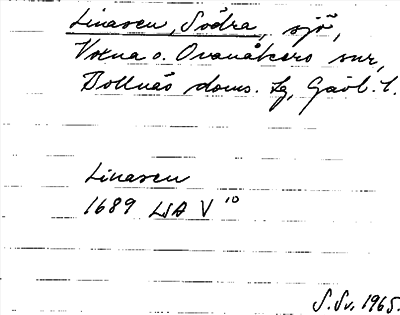 Linasen, Södra, sjö,
Voxna o. Ovanåkers snr,
Bollnäs doms. Lg, Gävl. l.
Linasen
1689 LSA V 10
S. Sv. 1965.